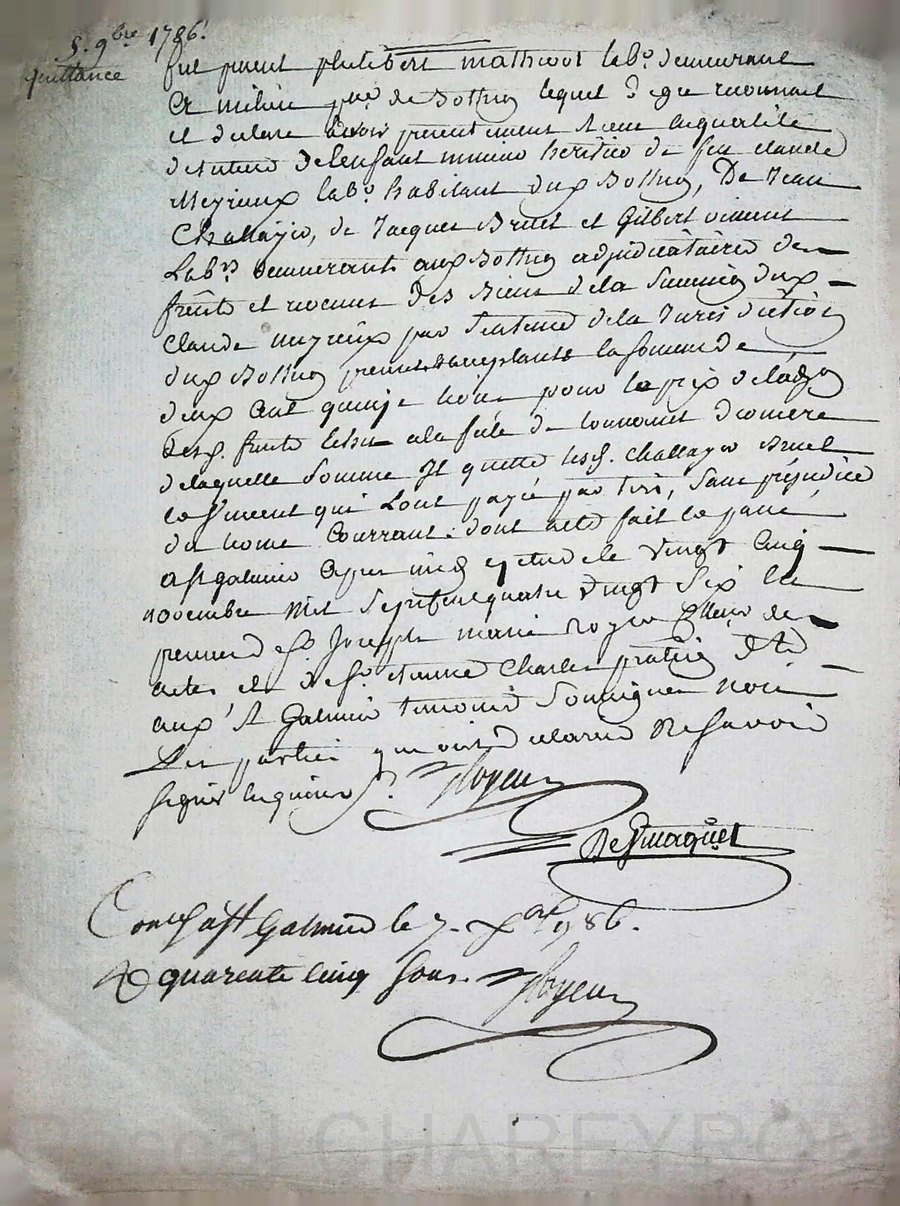 5. 9bre 1786.
quittance
fut présent philibert mathivot labr. demeurant
à milieu psse de Botheon lequel de gré reconnait
et déclare avoir présentement reçu en qualité
de tuteur de l'enfant mineur héritier de feu claude
Meyrieux labr. habitant dud Bothéon, De Jean
Challayer, de Jacques Bruel et Gilbert vincent
Labrs demeurants aud Bothéon adjudicataires des
fruits et revenus des Biens de la succession dud
claude meyrieux par sentence de la Jurisdiction
dud Bothéon présents acceptants la somme de
deux cent quinze livres pour le prix de
desd. fruits échu à la fête de
de laquelle somme Il quitte lesd. challayer Bruel
et vincent qui l'ont payée par tiers, sans préjudice
du terme Courrant. dont acte fait et passé
à st galmier après midi en étude le vingt cinq
novembre mil sept cent quatre vingt six en
présence de sr Joseph marie royer
actes et de sr étienne Charles praticien dt
aud st Galmier témoins soussignés non
les parties qui ont déclaré ne savoir
signer enquises s.
Royer
Contlé à st Galmier le 7. Xbre 1786.
R quarente cinq sous. Royer
Pascal CHAREYRON